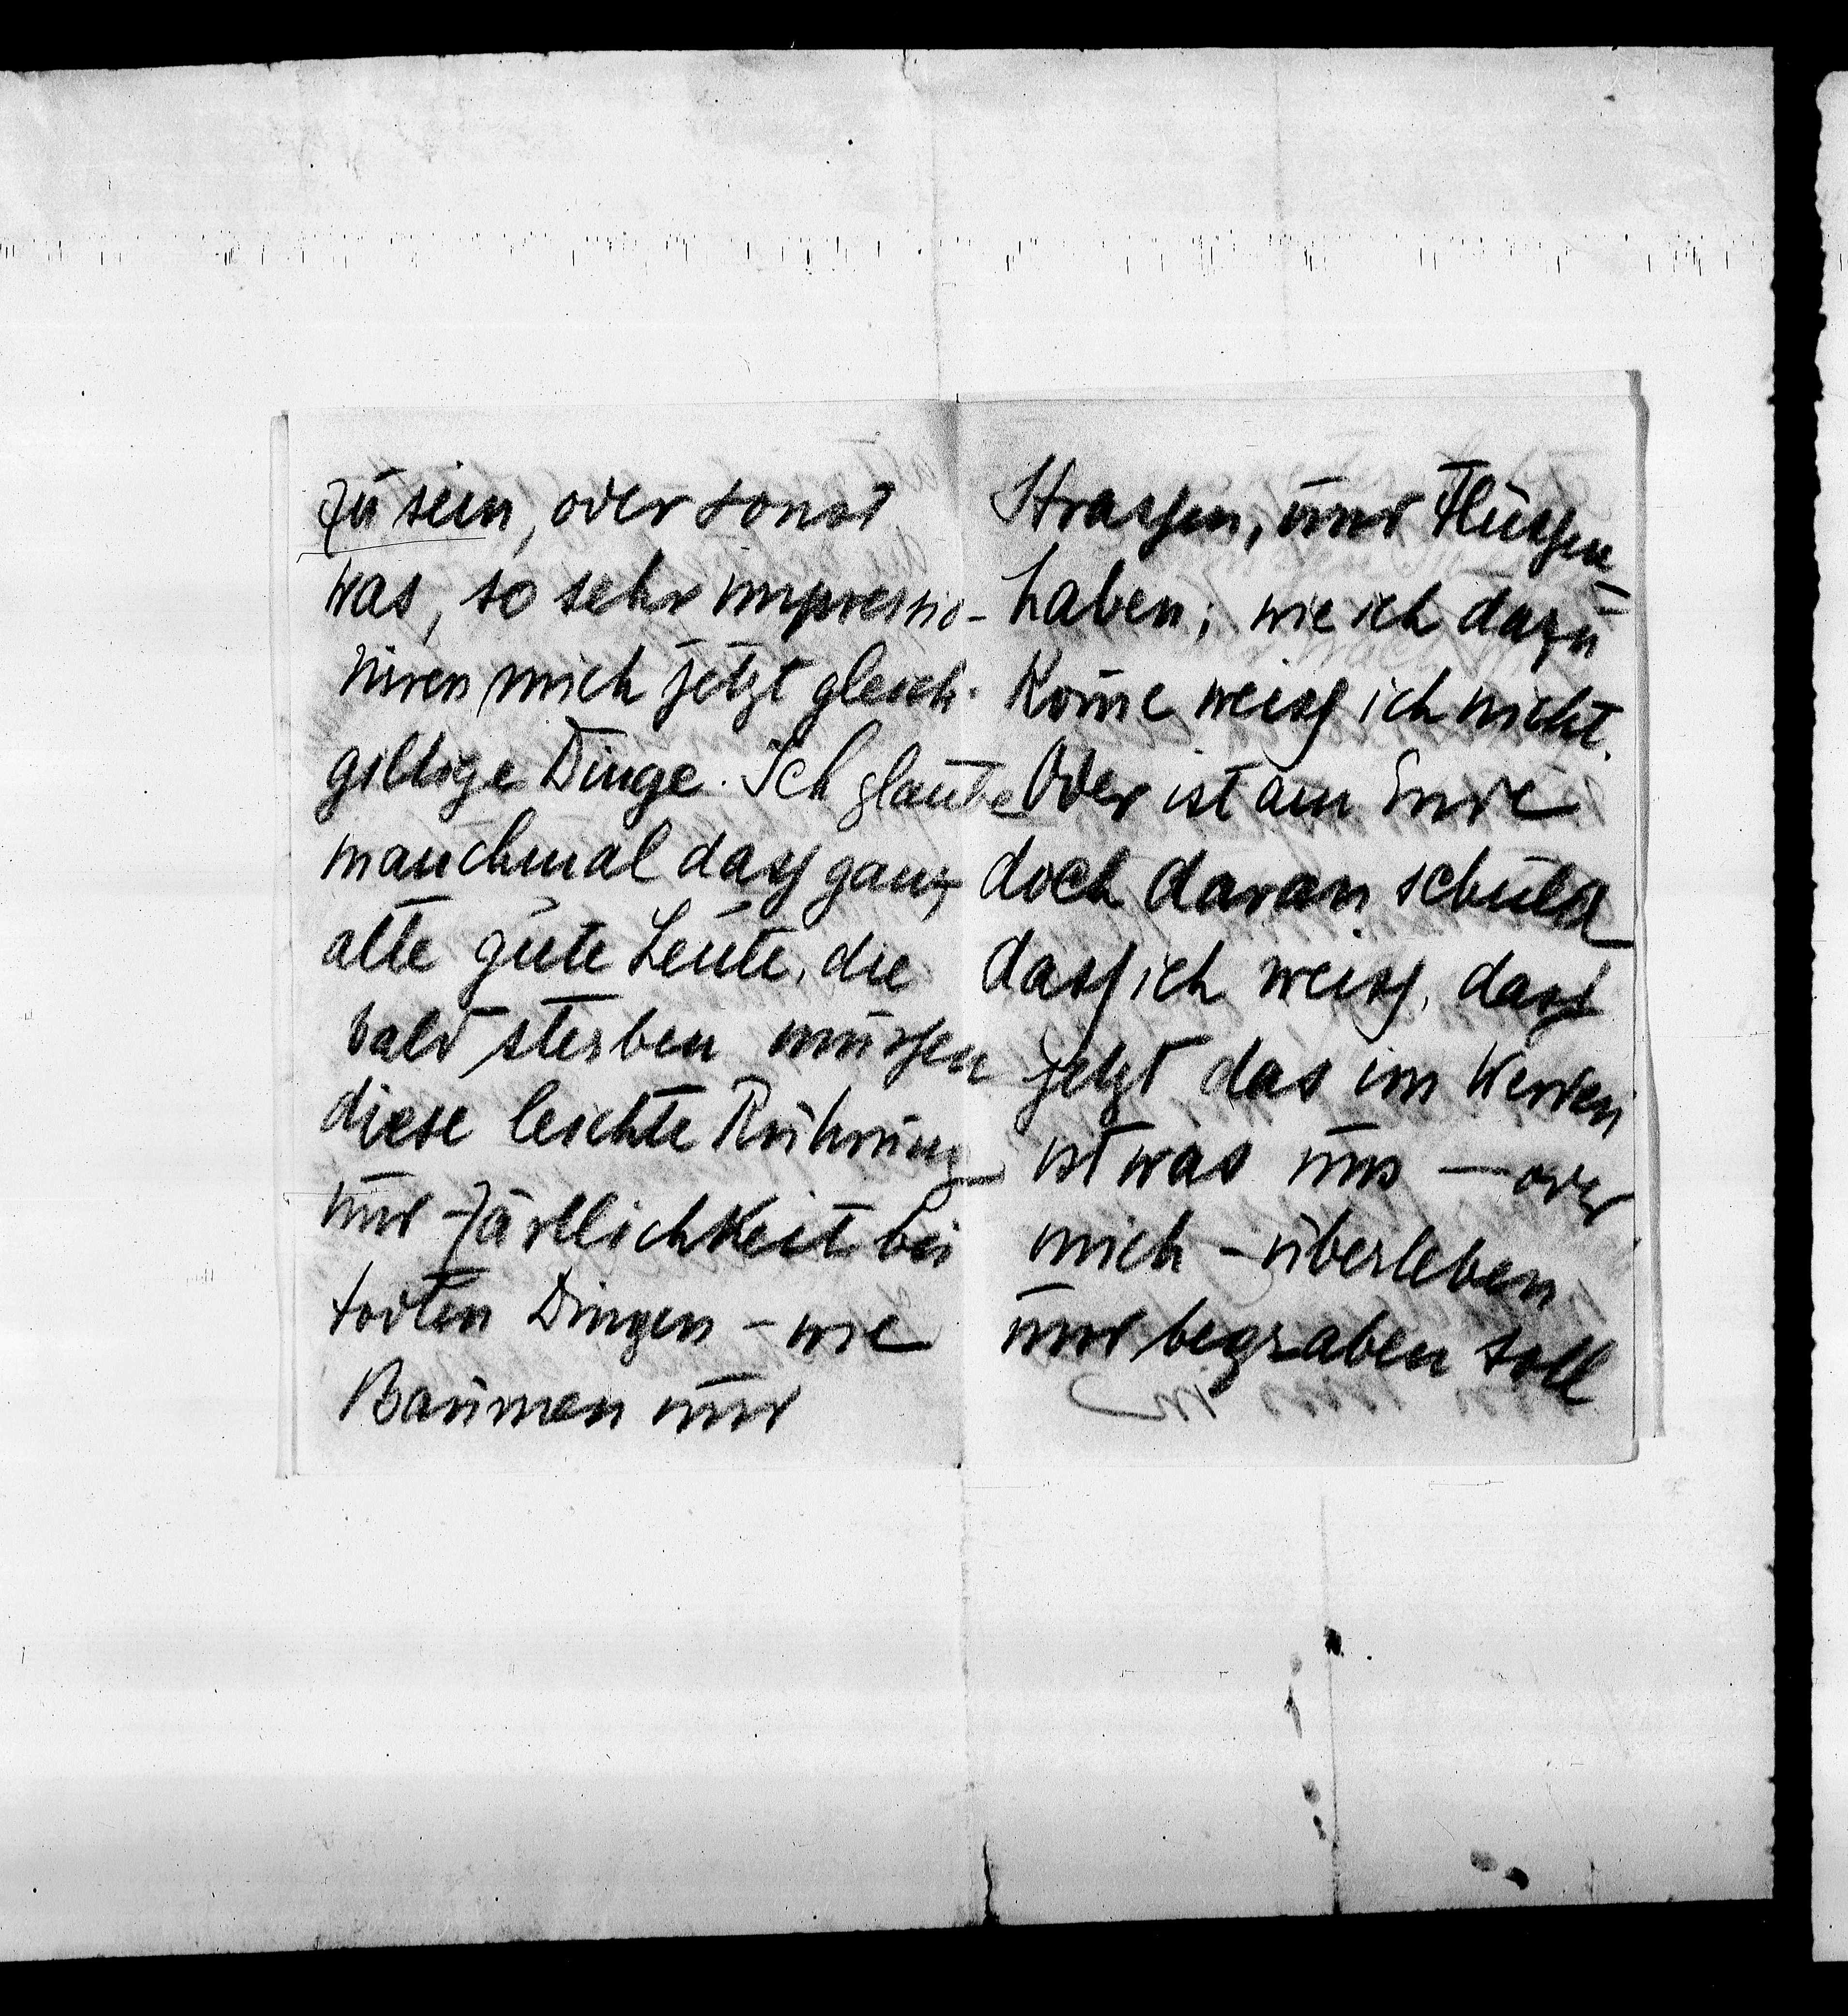 zu sein, oder sonst
was, so sehr impressio-
niren mich jetzt gleich-
giltige Dinge. Ich glaube
manchmal dass ganz
alte gute Leute, die
bald sterben müssen
diese leichte Rührung
und Zärtlichkeit bei
todten Dingen – wie
Bäumen und
Strassen, und Flüssen –
haben; wie ich dazu
kom̄e weiss ich nicht.
Oder ist am Ende
doch daran schuld
dass ich weiss, dass
jetzt das im Werden
ist was uns – oder
mich – überleben
und begraben soll